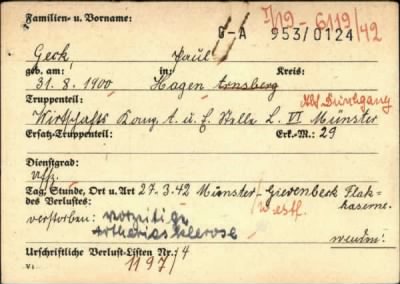 Familien- u. Vorname:
I/19 - 6119/42
G-A 953/0124
Geck Paul
geb. am: in: Kreis:
31. 8. 1900 Hagen Arnsberg
Truppenteil:
Wirtschafts Komp. L. VI Münster
Ersatz-Truppenteil: Erk.-M.: 29
Dienstgrad:
Uffz.
Tag, Stunde, Ort u. Art 27.3.42 Münster-Gievenbeck Flak-
des Verlustes: Westf. kaserne.
verstorben: vorzeitige
Arteriosklerose
Urschriftliche Verlust-Listen Nr.: 4
V: 1197/